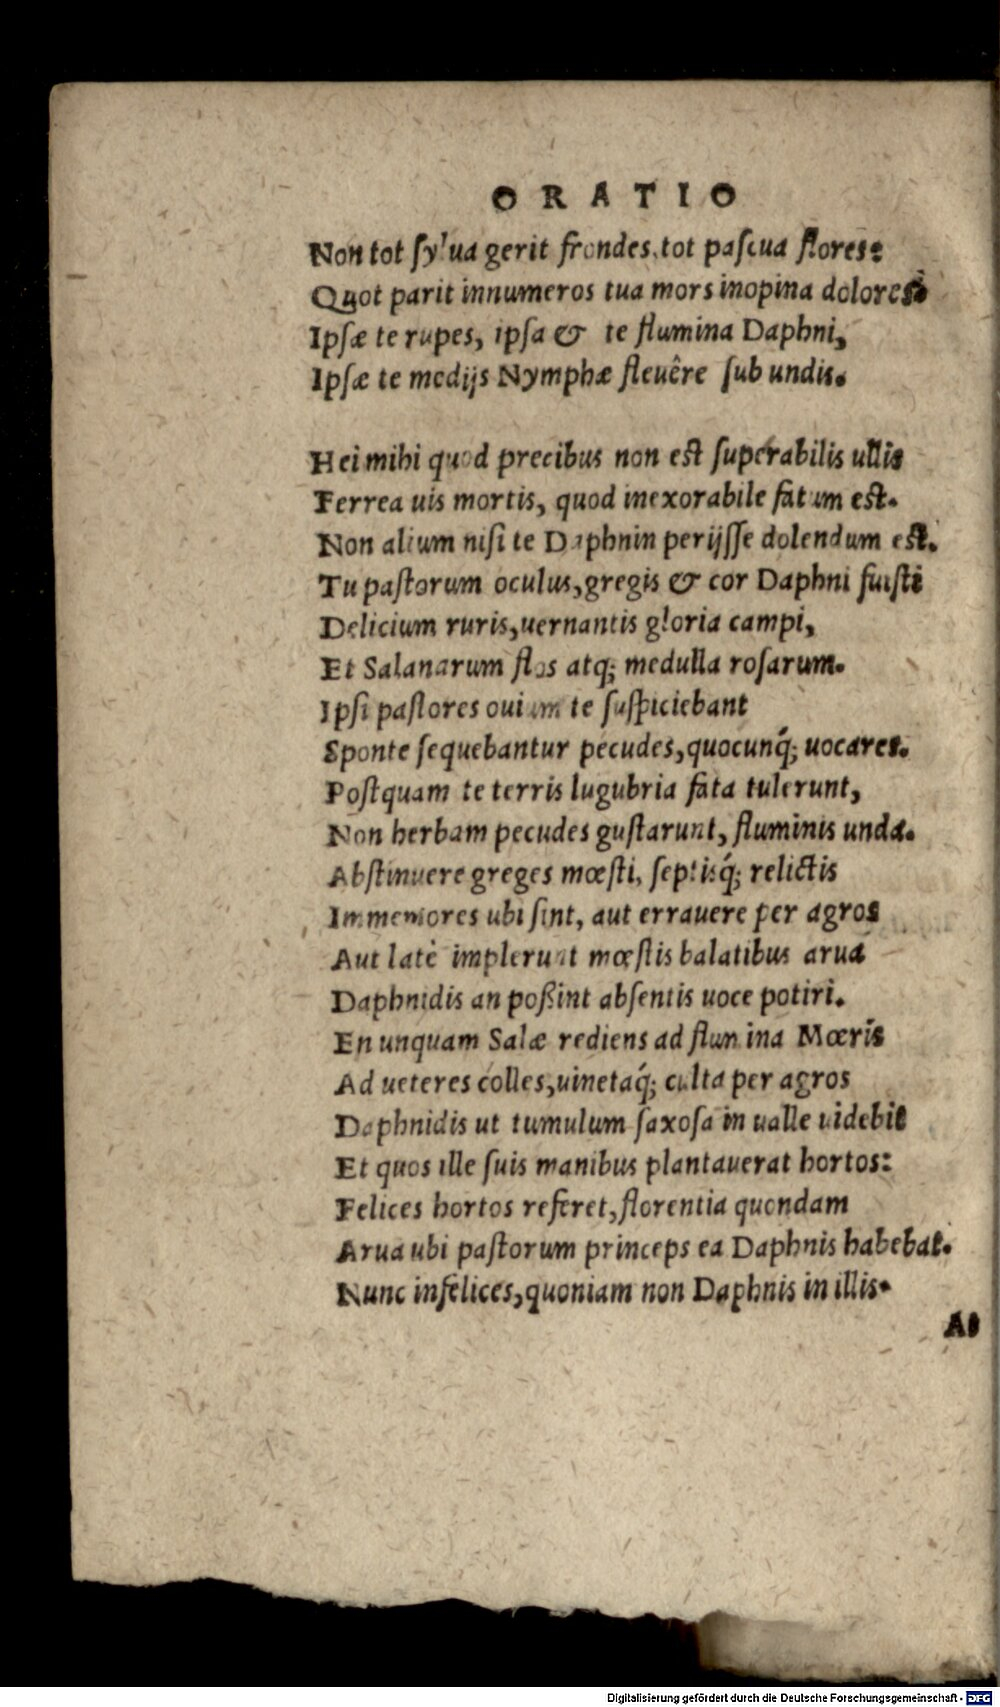 ORATIO
Non tot sylua gerit frondes, tot pascua flores:
Quot parit innumeros tua mors inopina dolores.
Ipsæ te rupes, ipsa & te flumina Daphni,
Ipsæ te medijs Nymphæ fleuêre sub undis.
Hei mihi quod precibus non est superabilis ullis
Ferrea uis mortis, quod inexorabile fatum est.
Non alium nisi te Daphnin perijsse dolendum est.
Tu pastorum oculus, gregis & cor Daphni fuisti
Delicium ruris, uernantis gloria campi,
Et Salanarum flos atq; medulla rosarum.
Ipsi pastores ouium te suspiciebant
Sponte sequebantur pecudes, quocunq́; uocares.
Postquam te terris lugubria fata tulerunt,
Non herbam pecudes gustarunt, fluminis unda.
Abstinuere greges mœsti, septisq́; relictis
Immemores ubi sint, aut errauere per agros
Aut latè implerunt mœstis balatibus arua
Daphnidis an poßint absentis uoce potiri.
En unquam Salæ rediens ad flumina Mœris
Ad ueteres colles, uinetaq́; culta per agros
Daphnidis ut tumulum saxosa in ualle uidebit
Et quos ille suis manibus plantauerat hortos:
Felices hortos referet, florentia quondam
Arua ubi pastorum princeps ea Daphnis habebat.
Nunc infelices, quoniam non Daphnis in illis.
Digitalisierung gefördert durch die Deutsche Forschungsgemeinschaft - DFG